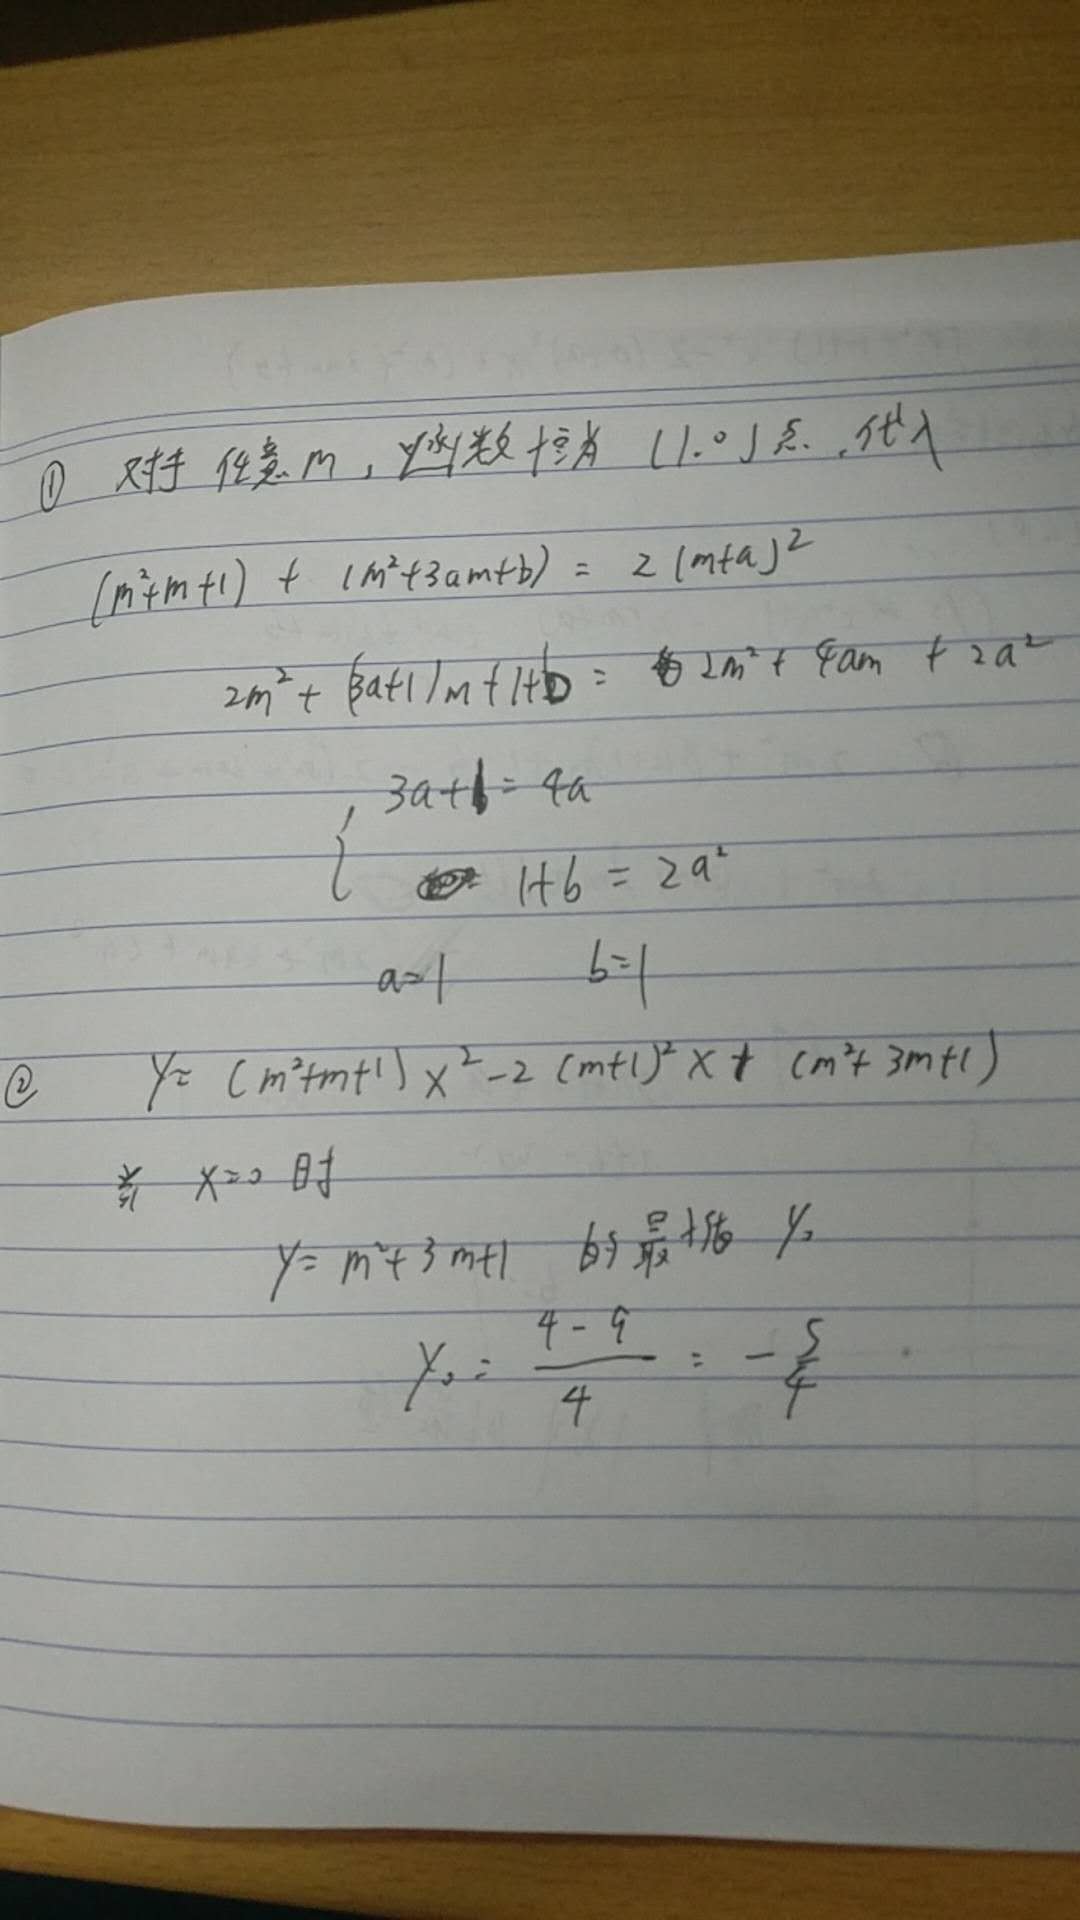 ① 对于任意 m, 必函数恒有 (1.0)点.代入
(m²+m+1) + (m²+3am+b) = 2(m+a)²
2m² + (3a+1)m+1+b = 2m² + 4am + 2a²
{ 3a+1 = 4a
1+b = 2a²
a=1 b=1
② y= (m²+m+1)x²-2(m+1)²x+ (m²+3m+1)
当 x=0 时
y= m²+3m+1 的最值 y₀
y₀ = (4-9)/4 = -5/4